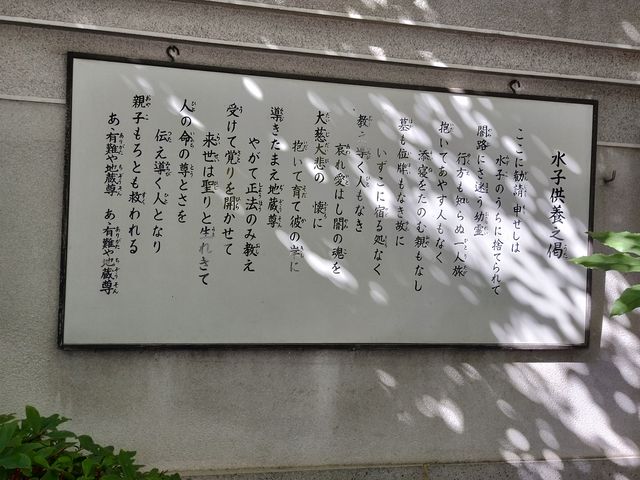 水子供養之偈
ここに勧請申せしは
水子のうちに捨てられて
闇路にさ迷う幼霊
行方も知らぬ一人旅
抱いてあやす人もなく
添寝をたのむ親もなし
墓も位牌もなき故に
いずこに宿る処なく
教え導く人もなき
哀れ愛おし闇の魂を
大慈大悲の御懐に
抱いて育て彼の岸に
導きたまえ地蔵尊
やがて正法のみ教え
受けて覚りを開かせて
来世は聖りと生れきて
人の命の尊とさを
伝え導く人となり
親子もろとも救われる
あゝ有難や地蔵尊 あゝ有難や地蔵尊